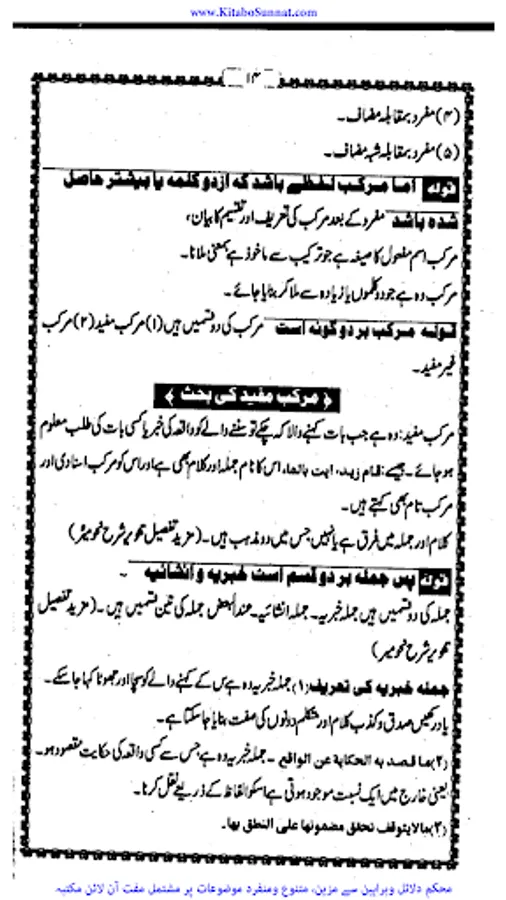 www.KitaboSunnat.com
۱۴
(۴) مفرد بمقابلہ مضاف۔
(۵) مفرد بمقابلہ شبہ مضاف۔
قولہ اما مرکب لفظے باشد کہ از دو کلمہ یا بیشتر حاصل
شدہ باشد مفرد کے بعد مرکب کی تعریف اور تقسیم کا بیان،
مرکب اسم مفعول کا صیغہ ہے جو ترکیب سے ماخوذ ہے بمعنی ملانا۔
مرکب وہ ہے جو دو کلموں یا زیادہ سے ملا کر بنایا جائے۔
قولہ مرکب بر دو گونہ است مرکب کی دو قسمیں ہیں (۱) مرکب مفید (۲) مرکب
غیر مفید۔
﴿ مرکب مفید کی بحث ﴾
مرکب مفید: وہ ہے جب بات کہنے والا کہہ چکے تو سننے والے کو واقعہ کی خبر یا کسی بات کی طلب معلوم
ہو جائے۔ جیسے: قام زید، ایت بالماء، اس کا نام جملہ اور کلام بھی ہے اور اس کو مرکب اسنادی اور
مرکب تام بھی کہتے ہیں۔
کلام اور جملہ میں فرق ہے یا نہیں جس میں دو مذہب ہیں۔ (مزید تفصیل تنویر شرح نحو میر)
قولہ پس جملہ بر دو قسم است خبریہ و انشائیہ۔
جملہ کی دو قسمیں ہیں جملہ خبریہ۔ جملہ انشائیہ۔ عند البعض جملہ کی تین قسمیں ہیں۔ (مزید تفصیل
تنویر شرح نحو میر)
جملہ خبریہ کی تعریف: (۱) جملہ خبریہ وہ ہے جس کے کہنے والے کو سچا اور جھوٹا کہا جا سکے۔
یاد رکھیں صدق و کذب کلام اور متکلم دونوں کی صفت بنایا جا سکتا ہے۔
(۲) ما قصد به الحكاية عن الواقع ۔ جملہ خبریہ وہ ہے جس سے کسی واقعہ کی حکایت مقصود ہو۔
یعنی خارج میں ایک نسبت موجود ہوتی ہے اسکو الفاظ کے ذریعے نقل کرنا۔
(۳) مالا يتوقف تحقق مضمونها على النطق بها۔
محکم دلائل وبراہین سے مزین، متنوع ومنفرد موضوعات پر مشتمل مفت آن لائن مکتبہ